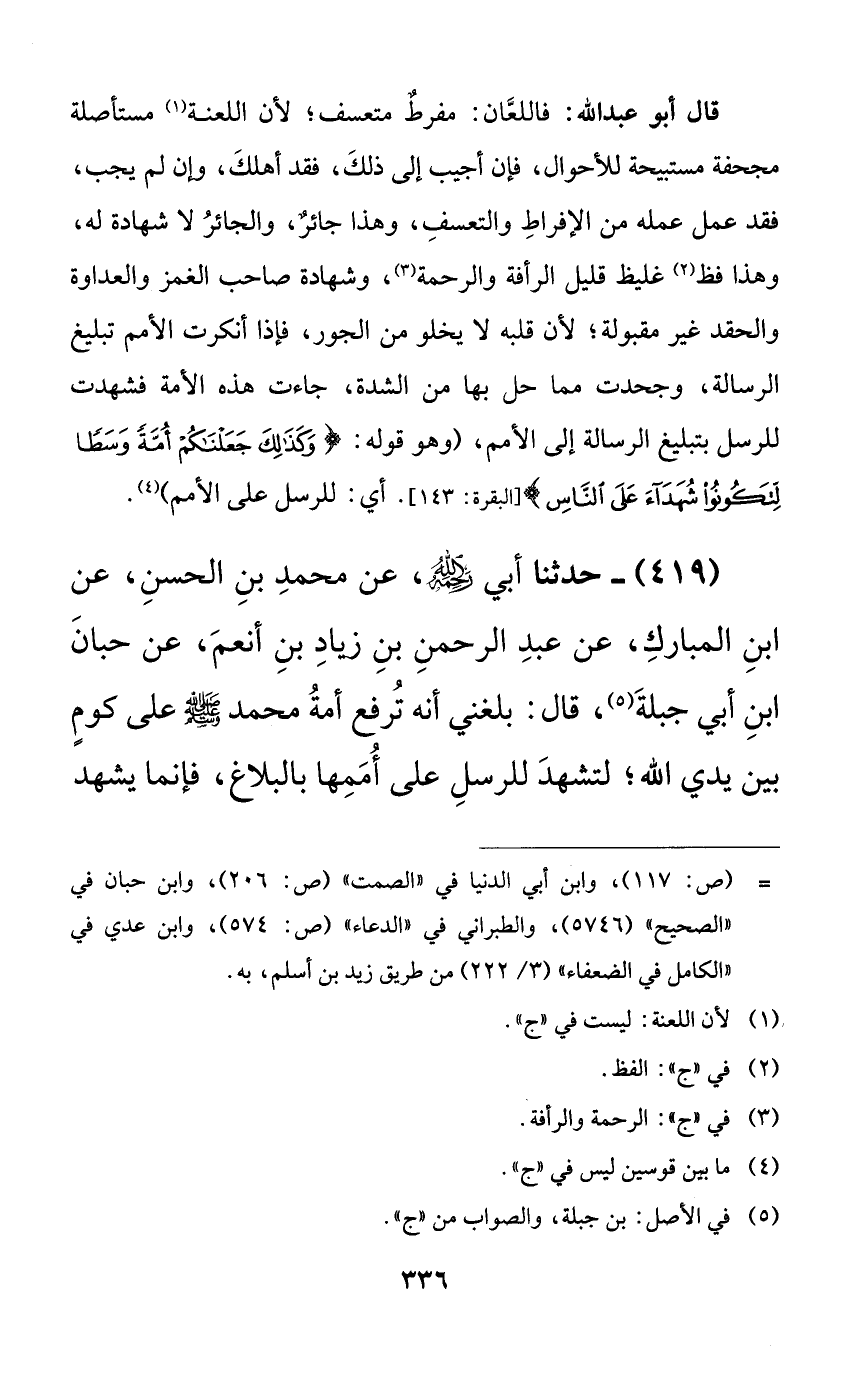 قال أبو عبدالله: فاللعَّان: مفرطٌ متعسف؛ لأن اللعنـة(١) مستأصلة
مجحفة مستبيحة للأحوال، فإن أجيب إلى ذلكَ، فقد أهلكَ، وإن لم يجب،
فقد عمل عمله من الإفراطِ والتعسفِ، وهذا جائرٌ، والجائرُ لا شهادة له،
وهذا فظ(٢) غليظ قليل الرأفة والرحمة(٣)، وشهادة صاحب الغمز والعداوة
والحقد غير مقبولة؛ لأن قلبه لا يخلو من الجور، فإذا أنكرت الأمم تبليغ
الرسالة، وجحدت مما حل بها من الشدة، جاءت هذه الأمة فشهدت
للرسل بتبليغ الرسالة إلى الأمم، (وهو قوله: ﴿ وَكَذَٰلِكَ جَعَلْنَٰكُمْ أُمَّةً وَسَطًا
لِتَكُونُوا۟ شُهَدَآءَ عَلَى ٱلنَّاسِ ﴾[البقرة: ١٤٣]. أي: للرسل على الأمم)(٤).
(٤١٩) ـ حدثنا أبي رحمه الله، عن محمدِ بنِ الحسنِ، عن
ابنِ المباركِ، عن عبدِ الرحمنِ بنِ زيادِ بنِ أنعمَ، عن حبانَ
ابنِ أبي جبلةَ(٥)، قال: بلغني أنه تُرفع أمةُ محمد ﷺ على كومٍ
بين يدي الله؛ لتشهدَ للرسلِ على أُمَمِها بالبلاغ، فإنما يشهد
= (ص: ١١٧)، وابن أبي الدنيا في «الصمت» (ص: ٢٠٦)، وابن حبان في
«الصحيح» (٥٧٤٦)، والطبراني في «الدعاء» (ص: ٥٧٤)، وابن عدي في
«الكامل في الضعفاء» (٣/ ٢٢٢) من طريق زيد بن أسلم، به.
(١) لأن اللعنة: ليست في «ج».
(٢) في «ج»: الفظ.
(٣) في «ج»: الرحمة والرأفة.
(٤) ما بين قوسين ليس في «ج».
(٥) في الأصل: بن جبلة، والصواب من «ج».
٣٣٦